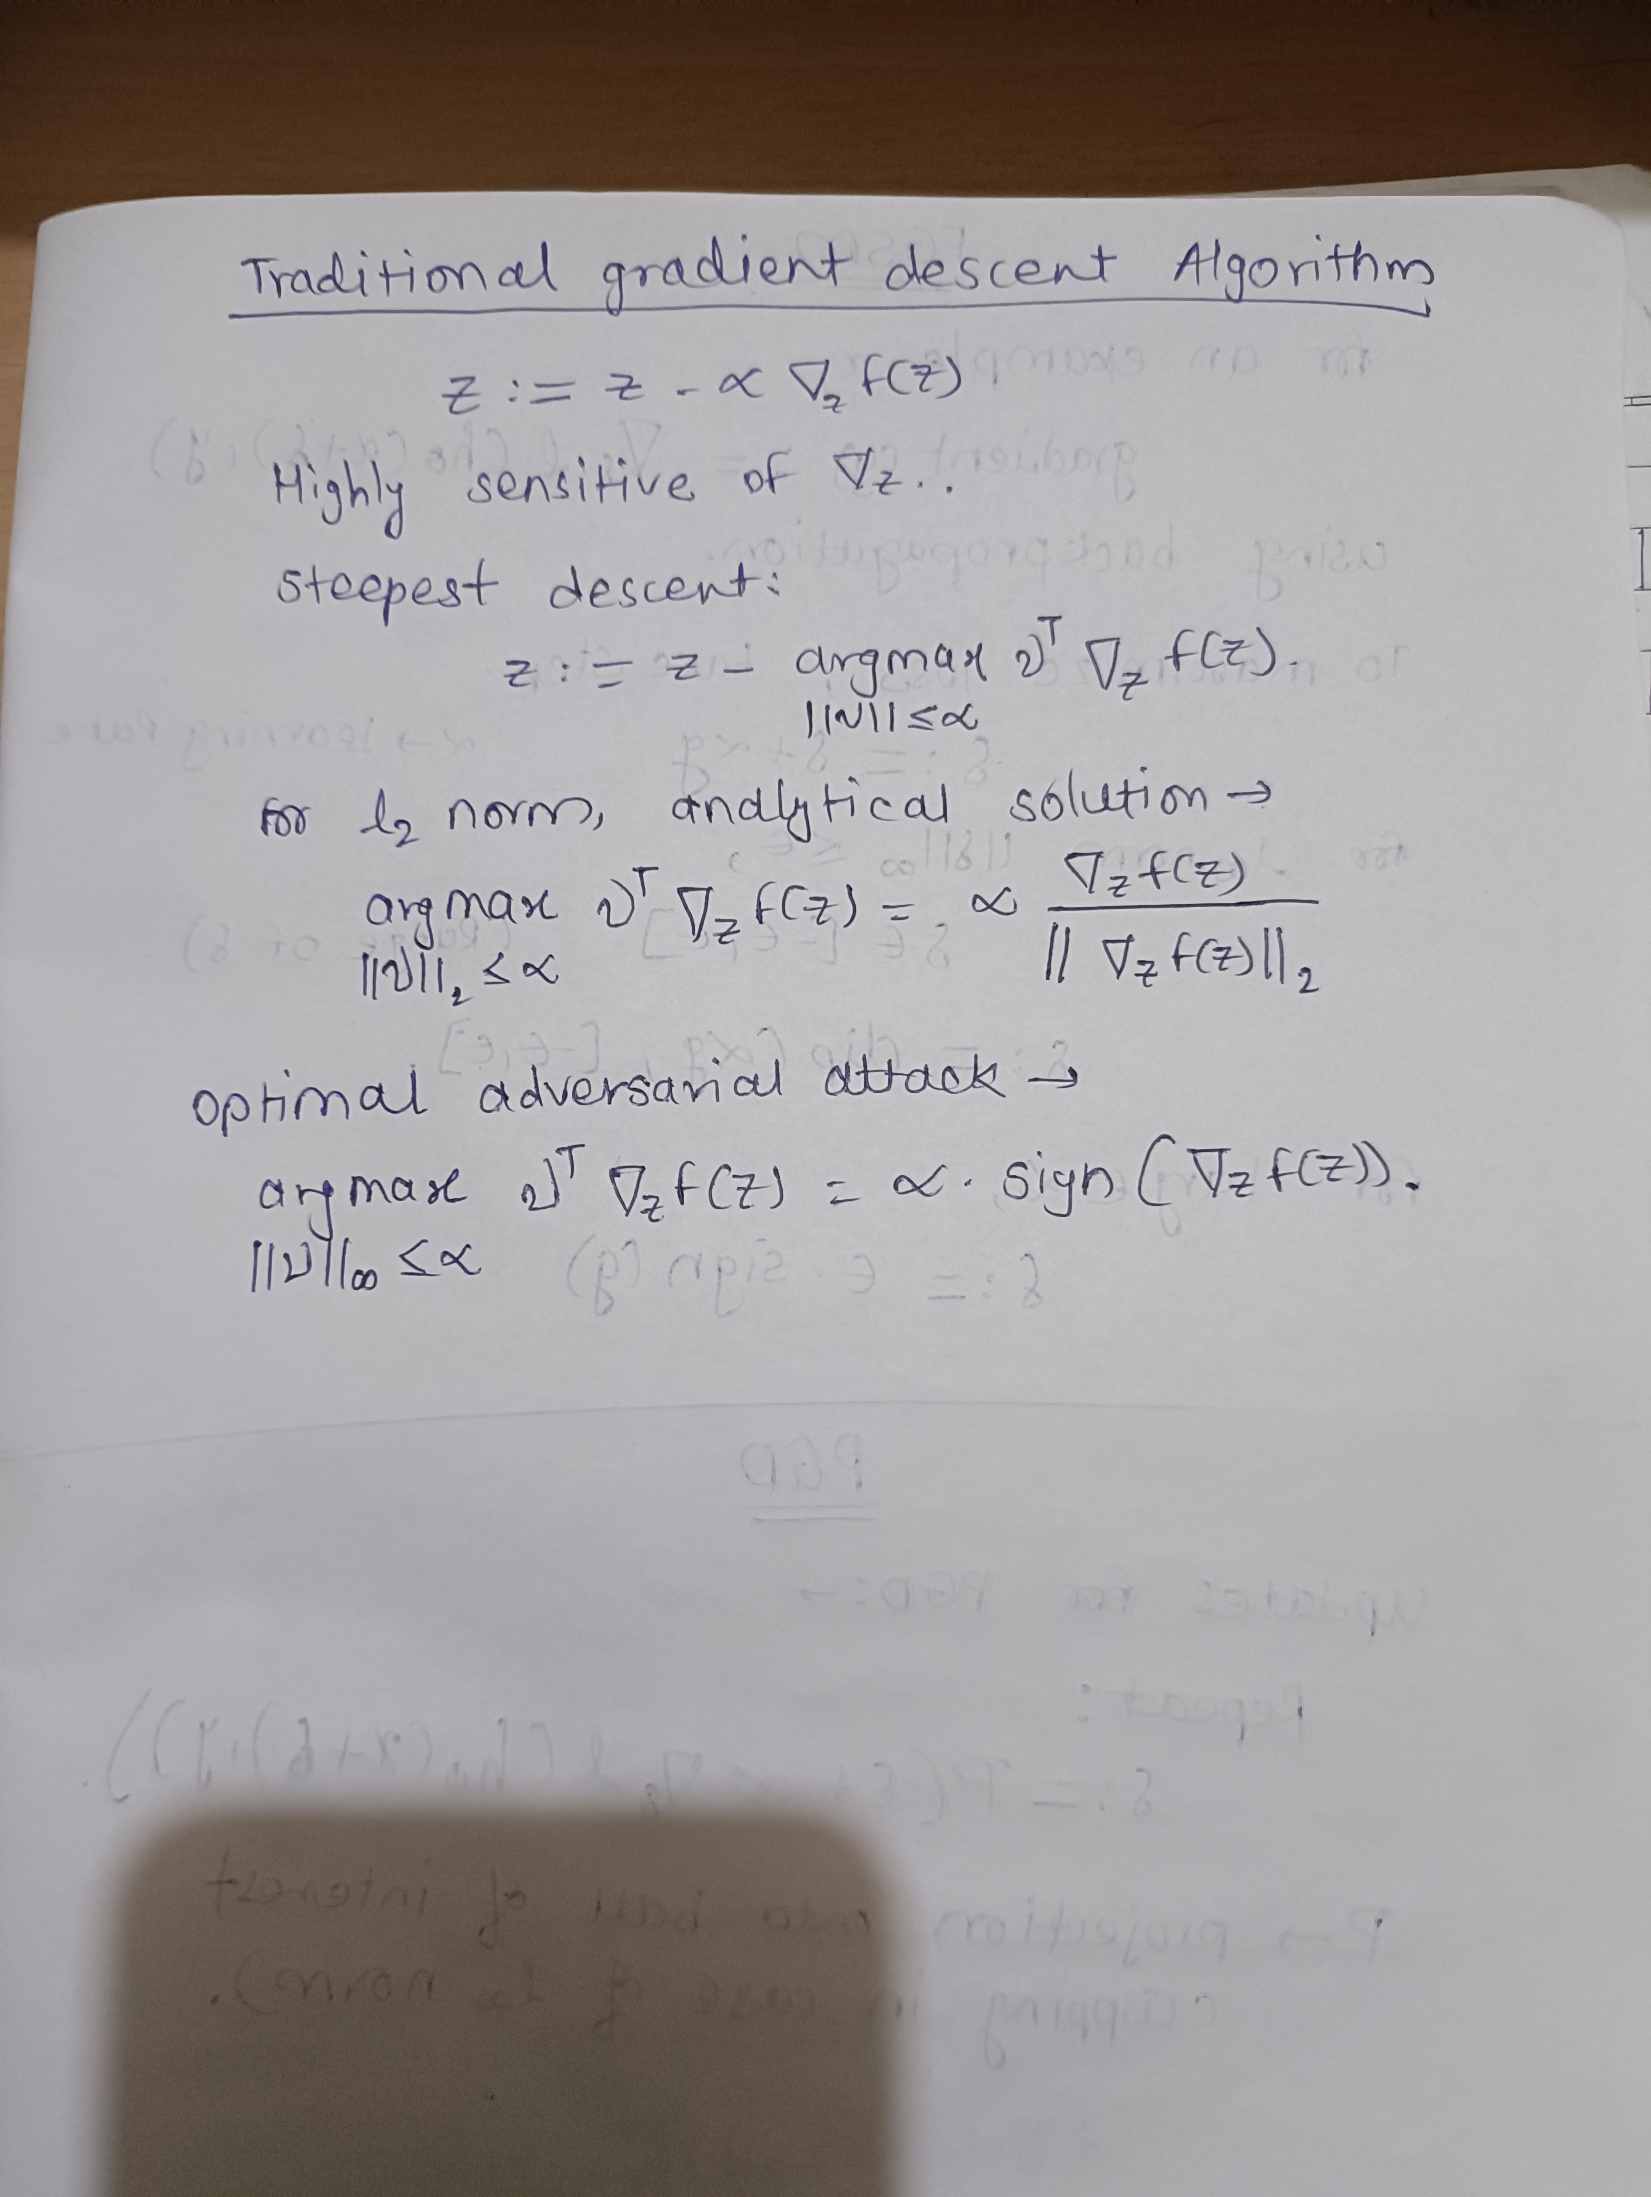 Traditional gradient descent Algorithm
z := z - α ∇z f(z)
Highly sensitive of ∇z..
Steepest descent:
z := z - argmax v^T ∇z f(z).
||v|| ≤ α
for l2 norm, analytical solution →
argmax v^T ∇z f(z) = α ∇z f(z) / || ∇z f(z)||2
||v||2 ≤ α
optimal adversarial attack →
argmax v^T ∇z f(z) = α. sign (∇z f(z)).
||v||∞ ≤ α